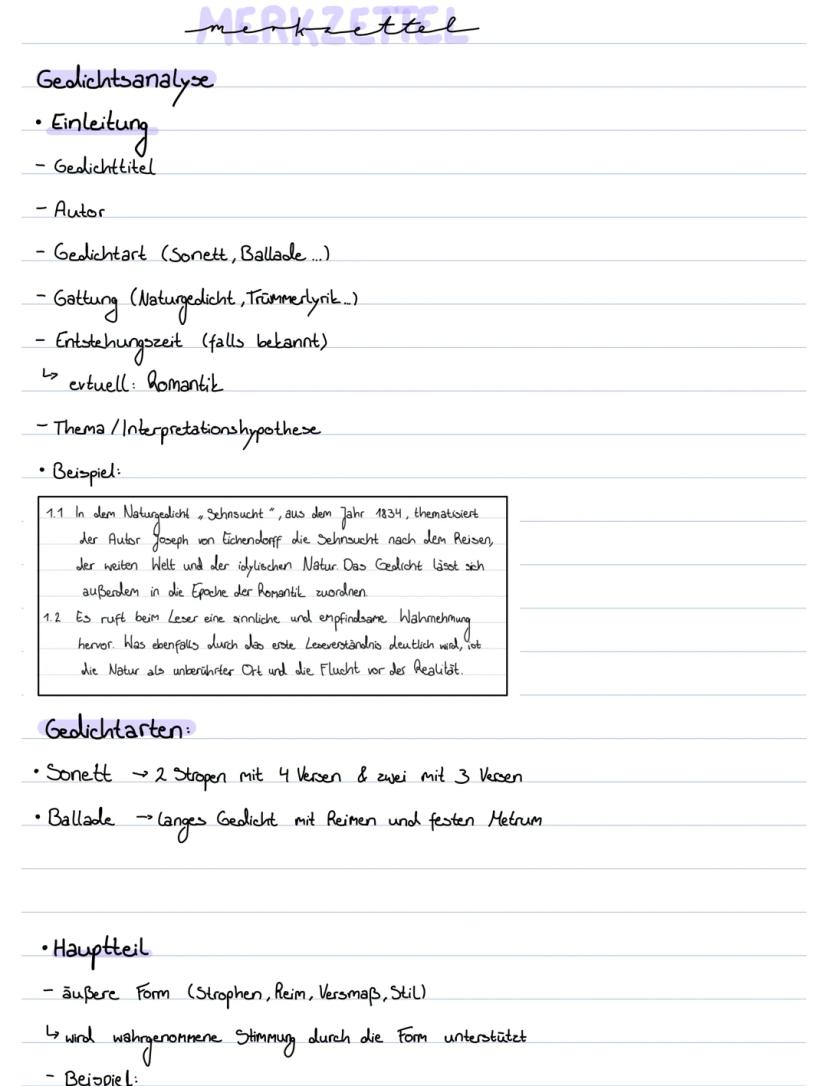 MERKZETTEL
merkzettel
Gedichtsanalyse
• Einleitung
- Gedichttitel
- Autor
- Gedichtart (Sonett, Ballade ...)
- Gattung (Naturgedicht, Trümmerlyrik...)
- Entstehungszeit (falls bekannt)
↳ evtuell: Romantik
- Thema / Interpretationshypothese
• Beispiel:
1.1 In dem Naturgedicht „Sehnsucht", aus dem Jahr 1834, thematisiert
der Autor Joseph von Eichendorff die Sehnsucht nach dem Reisen,
der weiten Welt und der idylischen Natur. Das Gedicht lässt sich
außerdem in die Epoche der Romantik zuordnen.
1.2 Es ruft beim Leser eine sinnliche und empfindsame Wahrnehmung
hervor. Was ebenfalls durch das erste Leseverständnis deutlich wird, ist
die Natur als unberührter Ort und die Flucht vor der Realität.
Gedichtarten:
• Sonett → 2 Stropen mit 4 Versen & zwei mit 3 Versen
• Ballade → langes Gedicht mit Reimen und festen Metrum
• Hauptteil
- äußere Form (Strophen, Reim, Versmaß, Stil)
↳ wird wahrgenommene Stimmung durch die Form unterstützt
- Beispiel: